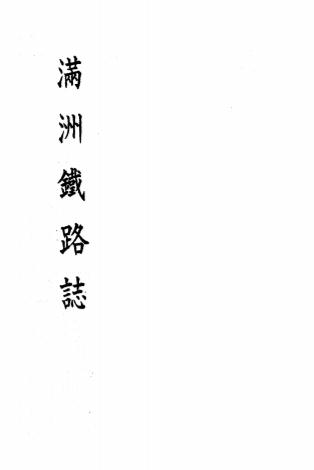 滿洲鐵路誌